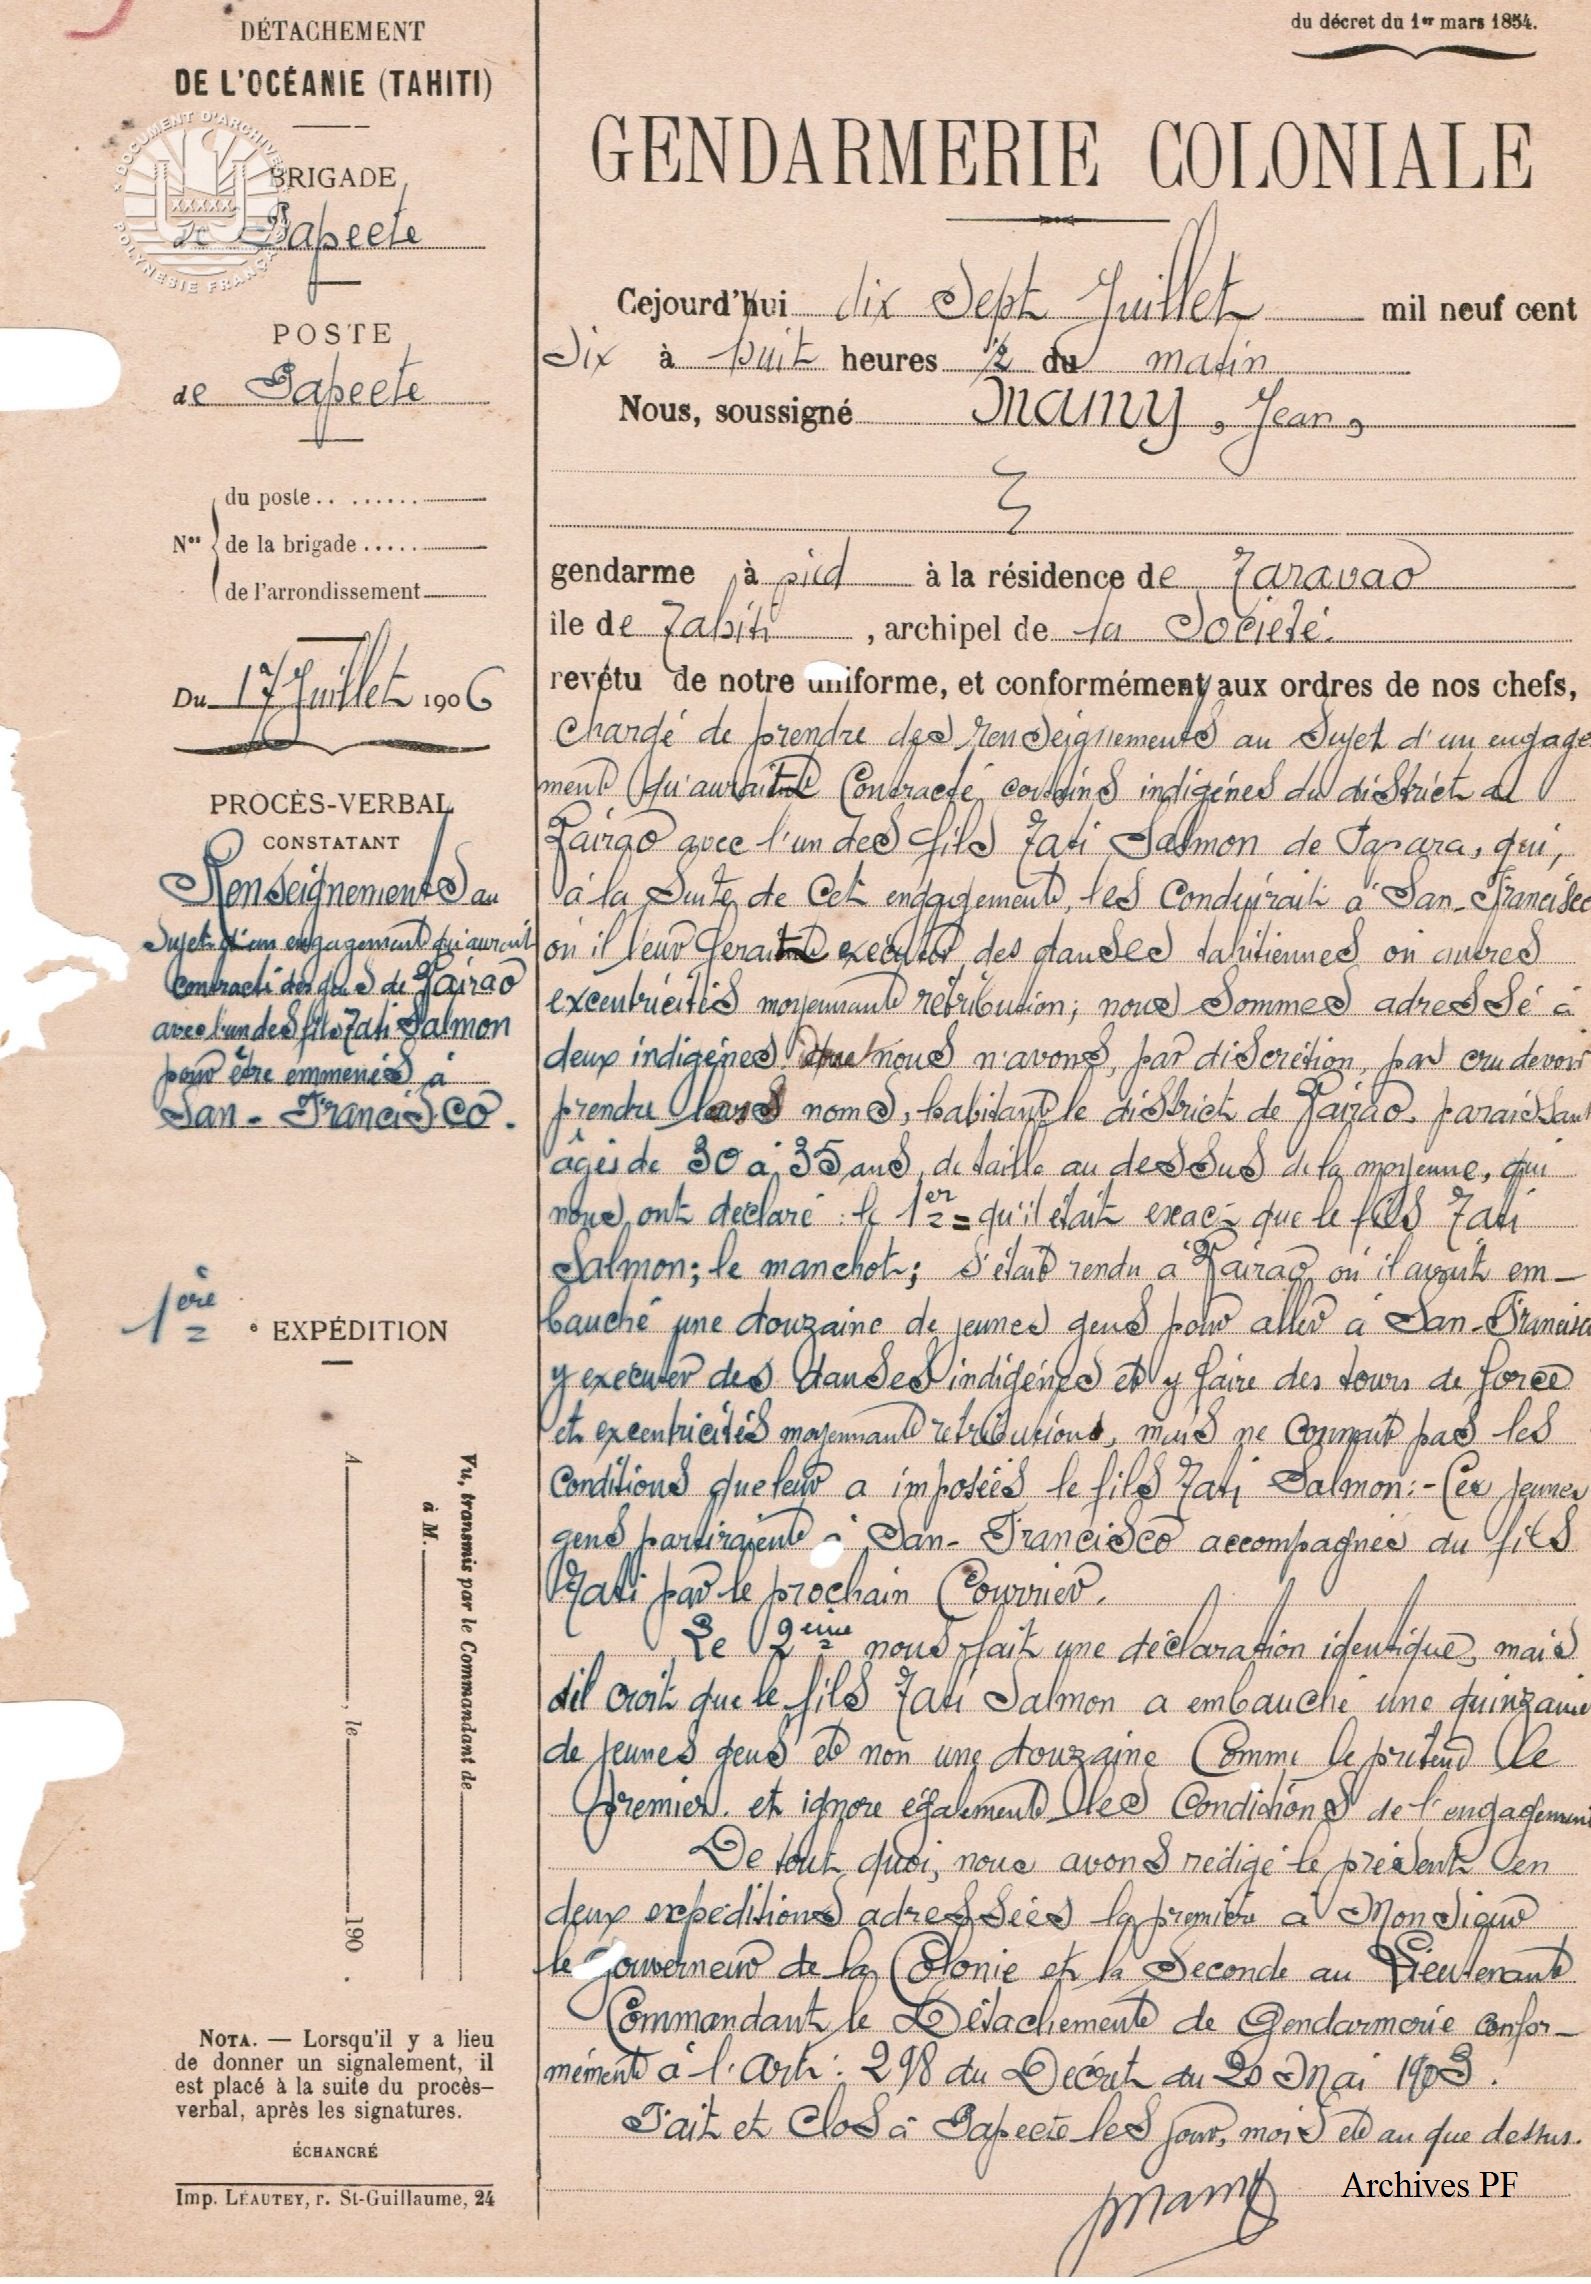 DÉTACHEMENT
DE L'OCÉANIE (TAHITI)
BRIGADE
de Papeete
POSTE
de Papeete
Nos
du poste
de la brigade
de l'arrondissement
Du 17 Juillet 1906
PROCÈS-VERBAL
CONSTATANT
Renseignements au
sujet d'un engagement qu'auraient
contracté des gens de Pairao
avec l'un des fils Tati Salmon
pour être emmenés à
San-Francisco.
1ère
e EXPÉDITION
Vu, transmis par le Commandant de
à M.
A , le 190 .
NOTA. — Lorsqu'il y a lieu
de donner un signalement, il
est placé à la suite du procès-
verbal, après les signatures.
ÉCHANCRÉ
Imp. LÉAUTEY, r. St-Guillaume, 24
DOCUMENT D'ARCHIVES
POLYNESIE FRANÇAISE
du décret du 1er mars 1854.
GENDARMERIE COLONIALE
Cejourd'hui dix Sept Juillet mil neuf cent
Six à huit heures 1/2 du matin
Nous, soussigné Mamy, Jean,
gendarme à pied à la résidence de Taravao
île de Tahiti , archipel de la Société.
revêtu de notre uniforme, et conformément aux ordres de nos chefs,
chargé de prendre des renseignements au sujet d'un engage
ment qu'aurait contracté certains indigènes du district de
Pairao avec l'un des fils Tati Salmon de Papara, qui,
à la suite de cet engagement, les conduirait à San-Francisco
où il leur ferait exécuter des danses tahitiennes ou autres
excentricités moyennant rétribution; nous sommes adressé à
deux indigènes que nous n'avons, par discrétion, pas cru devoir
prendre leurs noms, habitant le district de Pairao, paraissant
âgés de 30 à 35 ans, de taille au dessus de la moyenne, qui
nous ont déclaré : le 1er = qu'il était exact que le fils Tati
Salmon; le manchot; s'était rendu à Pairao où il avait em-
bauché une douzaine de jeunes gens pour aller à San-Francisco
y executer des danses indigènes et y faire des tours de force
et excentricités moyennant retributions, mais ne connait pas les
conditions que leur a imposées le fils Tati Salmon:- Ces jeunes
gens partiraient à San-Francisco accompagnés du fils
Tati par le prochain Courrier.
Le 2ème nous fait une déclaration identique, mais
il croit que le fils Tati Salmon a embauché une quinzaine
de jeunes gens et non une douzaine comme le prétend le
premier. et ignore également les conditions de l'engagement
De tout quoi, nous avons rédigé le présent en
deux expéditions adressées la première à Monsieur
le Gouverneur de la Colonie et la seconde au Lieutenant
Commandant le Détachement de Gendarmerie confor-
mément à l'art: 298 du Décret du 20 Mai 1903.
Fait et clos à Papeete les jour, mois et an que dessus.
Mamy
Archives PF